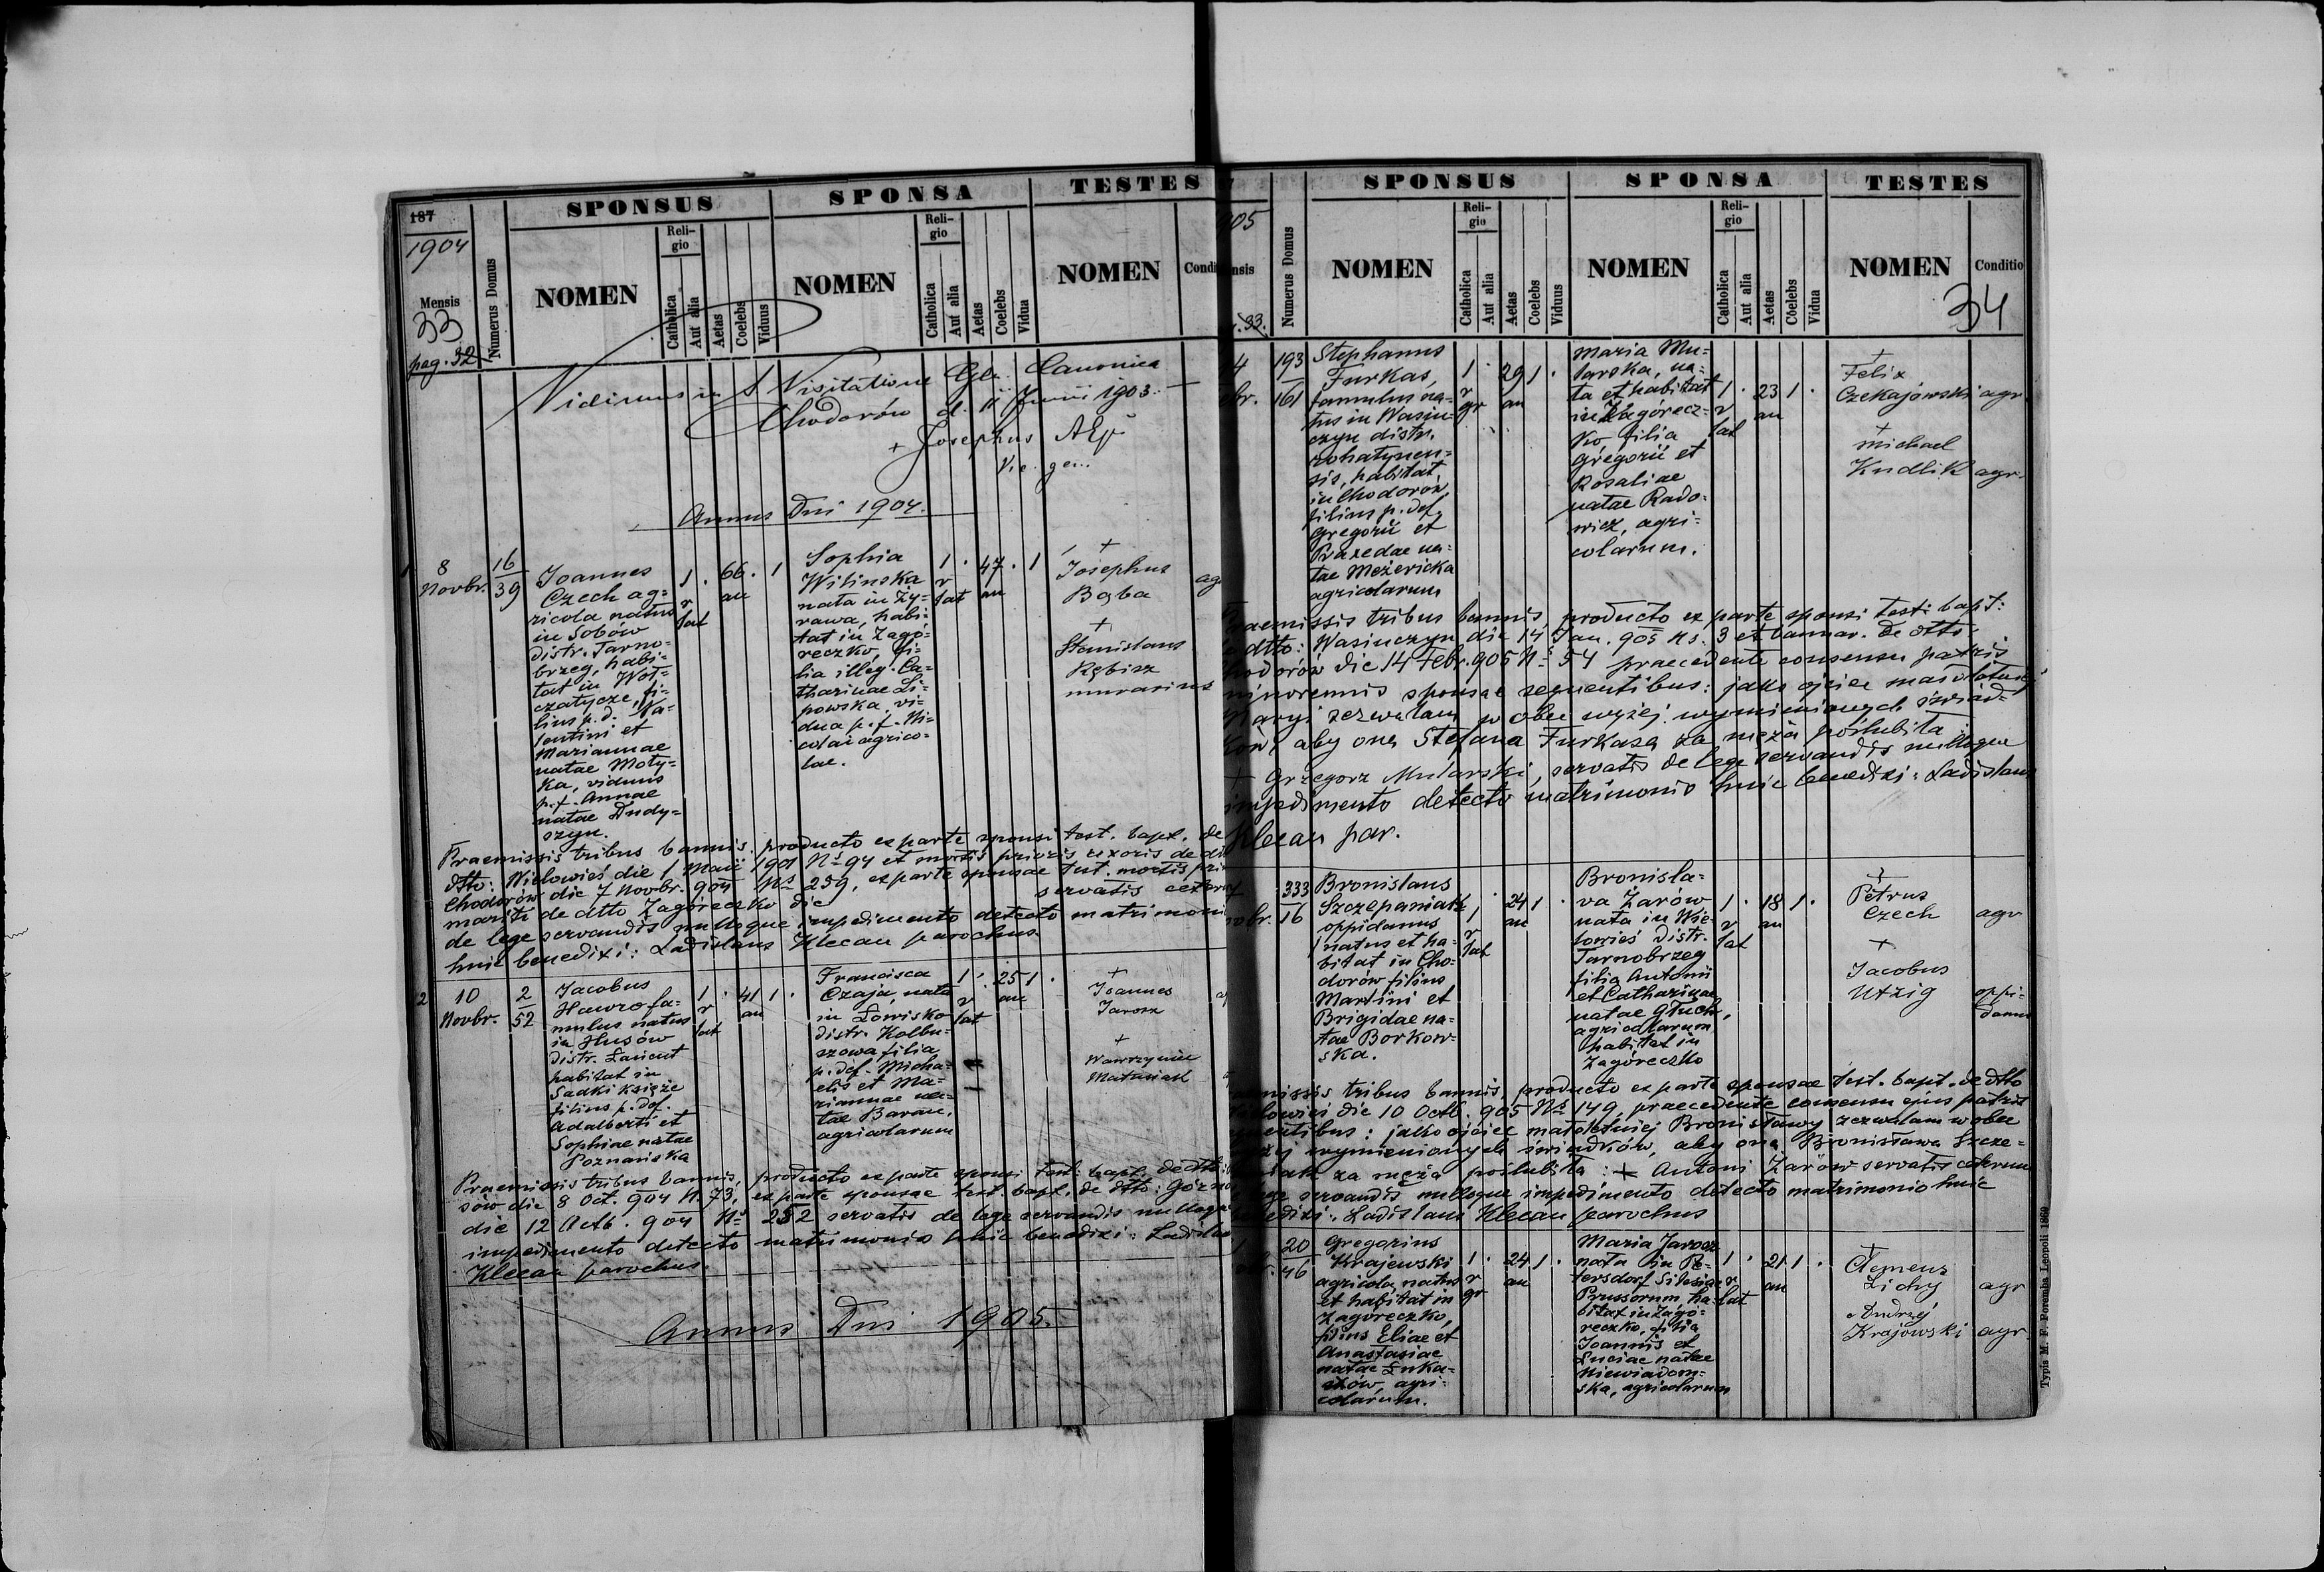 187
1904
Mensis
33
pag. 32
Numerus Domus
SPONSUS
NOMEN
Reli-
gio
Catholica
Aut alia
Aetas
Coelebs
Viduus
SPONSA
NOMEN
Reli-
gio
Catholica
Aut alia
Aetas
Coelebs
Vidua
TESTES
NOMEN
Condi
Vidimus in Visitatione Gli. Canonica
Chodorów d. 11 Junii 1903.
+ Josephus
Annus Dni 1904.
1
8
Novbr.
16
39
Joannes
Czech ag-
ricola natus
in Sobów
distr. Tarno-
brzeg, habi-
tat in Woł-
czatycze, fi-
lius p. d. Va-
lentini et
Mariannae
natae Moty-
ka, viduus
p. f. Annae
natae Dudy-
szyn.
1 . 66 . 1
r an
lat
Sophia
Wilinska
nata in Zy-
rawa, habi-
tat in Zagó-
reczko, fi-
lia illeg. Ca-
tharinae Li-
powska, vi-
dua p. f. Ni-
colai agrico-
lae.
1 . 47 . 1
r an
lat
+
Josephus
Bąba
ag
+
Stanislaus
Rębisz
murarius
Praemissis tribus bannis, producto ex parte sponsi test. bapt. de
dtto: Wielowieś die 1 Maii 1901 No 94 et mortis prioris uxoris de dt
Chodorów die 7 Novbr. 904 Ns 259, ex parte sponsae test. mortis pri
mariti de dtto Zagóreczko die servatis ceteris
de lege servandis nulloque impedimento detecto matrimoni
huic benedixi: Ladislaus Klecan parochus.
2
10
Novbr.
2
52
Jacobus
Hawro fa-
mulus natus
in Husów
distr. Łańcut
habitat in
Sadki Księże
filius p. def.
Adalberti et
Sophiae natae
Poznańska
1 . 41 1 .
r an
lat
Francisca
Czaja, nata
in Łowisko
distr. Kolbu-
szowa filia
p. def. Micha-
elis et Ma-
riannae na-
tae Baran,
agricolarum
1 . 25 1 .
r an
lat
+
Joannes
Jarosz
+
Wawrzyniec
Matusiak
Praemissis tribus bannis, producto ex parte sponsi test. bapt. de dtto:
sów die 8 Oct. 904 N. 73, ex parte sponsae test. bapt. de dtto: Górno
die 12 Octb. 904 Ns 252 servatis de lege servandis nulloque
impedimento detecto matrimonio huic benedixi: Ladislau
Klecan parochus.
Annus Dni 1905.
905
ensis
33.
Numerus Domus
SPONSUS
NOMEN
Reli-
gio
Catholica
Aut alia
Aetas
Coelebs
Viduus
SPONSA
NOMEN
Reli-
gio
Catholica
Aut alia
Aetas
Coelebs
Vidua
TESTES
NOMEN
Conditio
34
4
ebr.
193
161
Stephanus
Furkas,
famulus na-
tus in Wasiu-
czyn distr.
rohatynen-
sis, habitat
in Chodorów,
filius p. def.
Gregorii et
Praxedae na-
tae Meżericka
agricolarum
1 . 29 1 .
r an
gr
Maria Mu-
larska, na-
ta et habitat
in Zagórecz-
ko, filia
Gregorii et
Rosaliae
natae Rado-
wicz, agri-
colarum.
1 . 23 1 .
r an
lat
+
Felix
Czekajowski agr.
+
Michael
Kudlik agr.
Praemissis tribus bannis, producto ex parte sponsi test: bapt:
dtto: Wasiuczyn die 14 Jan. 905 Ns. 3 et bannor. de dtto:
Chodorów die 14 Febr. 905 Ns 54 praecedente consensu patris
minorennis sponsae sequentibus: jako ojciec małoletniej
Maryi zezwalam w obec wyżej wymienionych świad-
ków, aby ona Stefana Furkasa za męża poślubiła
+ Grzegorz Mularski, servatis de lege servandis nulloque
impedimento detecto matrimonio huic benedixi: Ladislaus
Klecan par.
ovbr.
333
16
Bronislaus
Szczepaniak
oppidanus
natus et ha-
bitat in Cho-
dorów filius
Martini et
Brigidae na-
tae Borkow-
ska.
1 . 24 1 .
r an
lat
Bronisla-
va Żarów
nata in Wie-
lowieś distr.
Tarnobrzeg
filia Antonii
et Catharinae
natae Głuch,
agricolarum
habitat in
Zagóreczko
1 . 18 1 .
r an
lat
+
Petrus
Czech agr
+
Jacobus
Utzig oppi-
danus
missis tribus bannis, producto ex parte sponsae test. bapt. de dtto
Wielowieś die 10 Octb. 905 Ns 149, praecedente consensu ejus patris
sequentibus: jako ojciec małoletniej Bronisławy zezwalam w obec
wyżej wymienionych świadków, aby ona Bronisława Szcze-
paniak za męża poślubiła: + Antoni Żarów servatis ceterum
lege servandis nulloque impedimento detecto matrimonio huic
benedixi: Ladislaus Klecan parochus
20
46
Gregorius
Krajewski
agricola, natus
et habitat in
Zagóreczko,
filius Eliae et
Anastasiae
natae Łuka-
szów, agri-
colarum.
1 . 24 1 .
r an
gr
Maria Jarosz
nata in Pe-
tersdorf Silesiae
Prussorum, ha-
bitat in Zagó-
reczko, filia
Joannis et
Luciae natae
Niewiadom-
ska, agricolarum
1 . 21 1 .
r an
lat
+
Clemens
Lichy agr
Andrzej
Krajowski agr
Typis M. F. Poremba Leopoli 1869